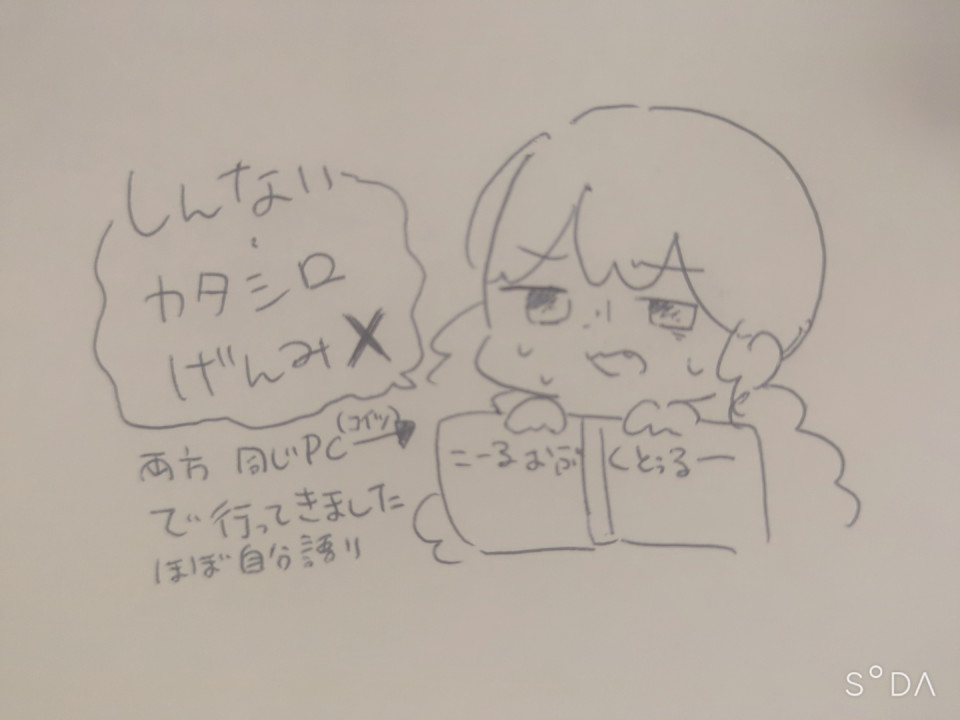 しんない
・
カタシロ
げんみ✕
両方 同じPC
(コイツ)
で行ってきました
ほぼ自分語り
こーるおぶ
くとぅるー
SODA